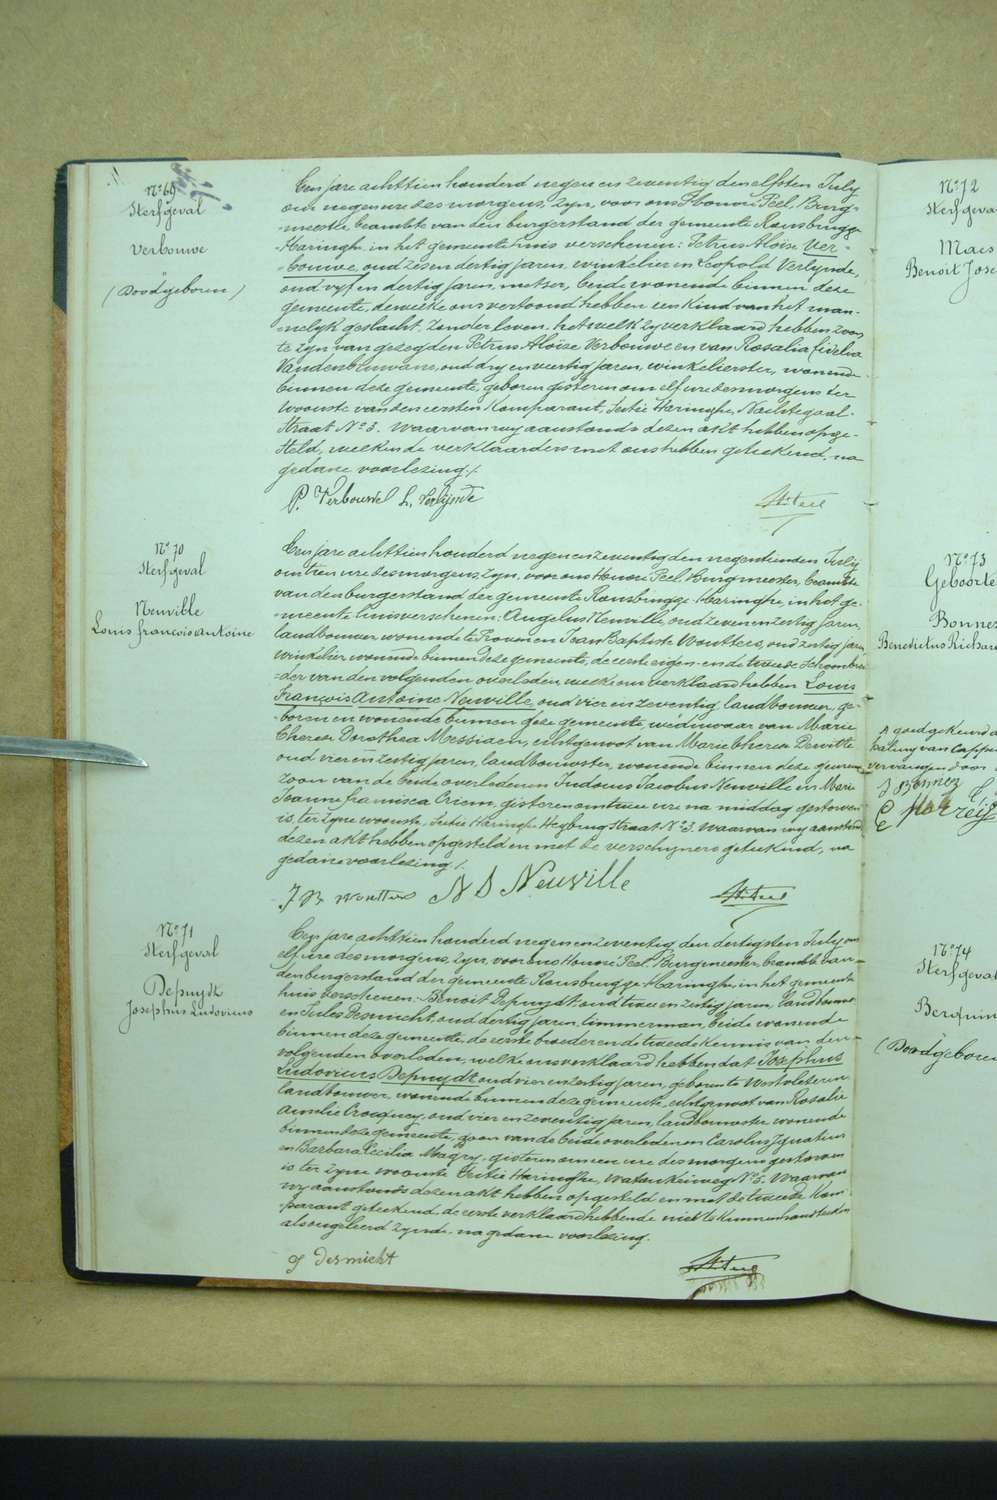 N° 69
Sterfgeval
Verbouwe
(Doodgeboren)
Een jare achttien honderd negen en zeventig den elfsten July
om negen ure des morgens, zyn, voor ons Honoré Peel, Burg-
-meester beambte van den burgerstand der gemeente Rousbrugge
Haringhe, in het gemeente huis verschenen: Petrus Aloise Ver-
-bouwe, oud zes en dertig jaren, winkelier en Leopold Verlynde,
oud vyf en dertig jaren, metser, beide wonende binnen deze
gemeente, dewelke ons vertoond hebben een kind van het man-
-nelyk geslacht, zonder leven, het welk zy verklaard hebben zoon
te zyn van gezegden Petrus Aloise Verbouwe en van Rosalia Fidelia
oud dry en veertig jaren, winkelierster, wonende
binnen deze gemeente, geboren gisteren om elf ure des morgens ter
woonste van den eersten Komparant, Sectie Haringhe, Nachtegaal-
Straat N° 3. Waarvan wy aanstonds dezen akt hebben opge-
steld, welken de verklaarders met ons hebben geteekend, na
gedane voorlezing./.
P. Verbouwe L. Verlynde
N° 70
Sterfgeval
Neuville
Louis francois antoine
Een jare achttien honderd negen en zeventig den negentienden July
om tien ure des morgens, zyn, voor ons Honoré Peel, Burgmeester, beambte
van den burgerstand der gemeente Rousbrugge-Haringhe, in het ge-
-meente huis verschenen: Angelus Neuville, oud zeven en zestig jaren,
landbouwer wonende te Proven en Ivan Baptiste Woutters, oud zestig jaren
winkelier wonende binnen deze gemeente, de eerste eigen- en de tweede
-der van den volgenden overleden, welke ons verklaard hebben Louis
François Antoine Neuville, oud vier en zeventig, landbouwer, ge-
-boren en wonende binnen deze gemeente, weduwaar van Marie
Theresa Dorothea Messiaen, echtgenoot van Marie Theresa Dewitte
oud vier en zestig jaren, landbouwster, wonende binnen deze gemeente
zoon van de beide overledenen Judocus Jacobus Neuville en Marie
Joanne francisca gisteren om twee ure na middag gestorven
is ter zyne wooste, Sectie Haringhe Straat N° 3. Waarvan wy aanstonds
dezen akt hebben opgesteld en met de verschyners geteekend, na
gedane voorlezing./.
J B Woutters N D Neuville
N° 71
Sterfgeval
Depuydt
Josephus Ludovicus
Een jare achttien honderd negen en zeventig, den dertigsten July om
elf ure des morgens, zyn, voor ons Honoré Peel, Burgmeester, beambte van
den burgerstand der gemeente Rousbrugge-Haringhe, in het gemeente
huis verschenen: Benoit Depuydt, oud twee en zestig jaren, landbouwer
en Jules Desmicht, oud dertig jaren, timmerman, beide wonende
binnen deze gemeente, de eerste broeder en de tweede kennis van den
volgenden overleden, welke ons verklaard hebben dat Josephus
Ludovicus Depuydt, oud vier en zestig jaren, geboren te Westvleteren
landbouwer, wonende binnen deze gemeente, echtgenoot van Rosalie
Amelie oud vier en zeventig jaren, landbouwster wonende
binnen deze gemeente, zoon van de beide overledenen Carolus Ignatius
en Barbara Cecilia gisteren om een ure des morgens gestorven
is ter zyne wooste Sectie Haringhe, N° 5. Waarvan
wy aanstonds dezen akt hebben opgesteld en met de tweede Kom-
-parant geteekend, de eerste verklaard hebbende niet te kunnen handteeken
als ongeleerd zynde, na gedane voorlezing.
J Desmicht
N° 72
Sterfgeva
Maes
Benoit Jose
N° 73
Geboorte
Bonnez
Benedictus Richar
J Bonnez
N° 74
Sterfgeval
Berquin
(Doodgeboren